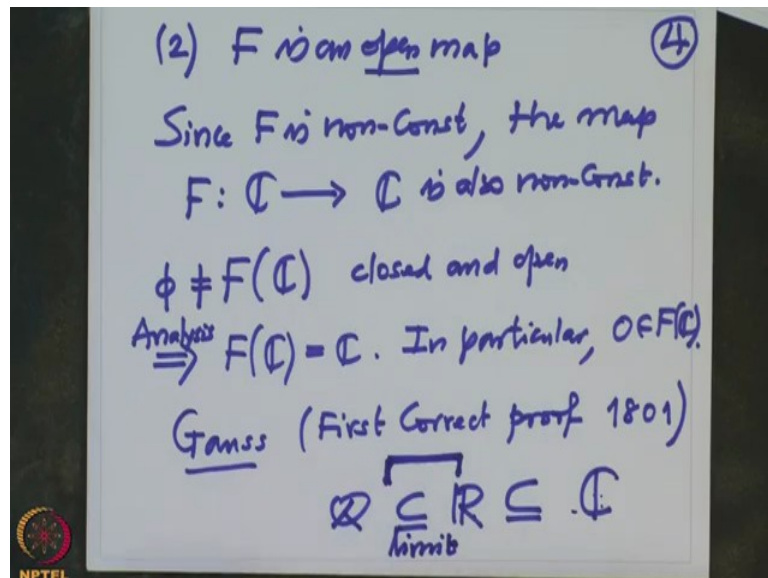 (2) F is an open map ④
Since F is non-Const, the map
F: ℂ ⟶ ℂ is also non-Const.
ϕ ≠ F(ℂ) closed and open
Analysis ⟹ F(ℂ) = ℂ. In particular, 0∈F(ℂ).
Gauss (First Correct proof 1801)
ℚ ⊆ ℝ ⊆ ℂ
limit
NPTEL